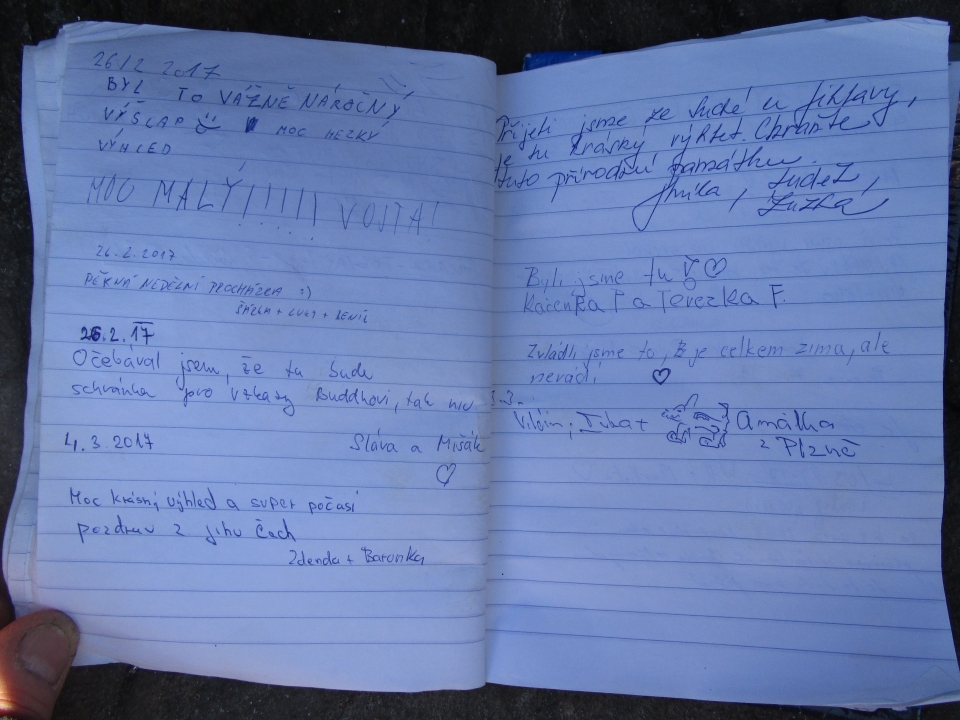 26/2 2017
BYL TO VÁŽNĚ NÁROČNÝ
VÝŠLAP MOC HEZKÝ
VÝHLED
MOC MALÝ!!!!! VOJTA!
26.2.2017
PĚKNÁ NEDĚLNÍ PROCHÁZKA :)
ŠÁRKA + LUKY + DENIS
26.2.17
Očekával jsem, že tu bude
schránka pro vzkazy Buddhovi, tak nic
Sláva a Mišák
4.3.2017
Moc krásný výhled a super počasí
pozdrav z jihu Čech
Zdenda + Barunka
Přijeli jsme ze Suché u Jihlavy,
je tu krásný výhled. Chraňte
tuto přírodní památku.
Jmila, Luděž,
Zuzka
Byli jsme tu
Kačenka P a Terezka F.
Zvládli jsme to, je celkem zima, ale
nevadí
3.3.
Vilém, + Amálka
z Plzně